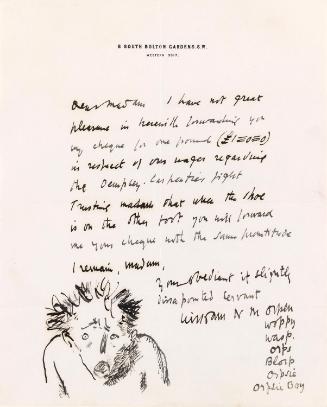 8 SOUTH BOLTON GARDENS. S.W.
WESTERN 3017.
Dear Madam I have not great
pleasure in herewith forwarding you
my cheque for one pound (£1=0=0)
in respect of our wages regarding
the Dempsey-Carpentier fight
Trusting madam that when the shoe
is on the other foot you will forward
me your cheque with the same promtitude
I remain, madam,
Your obedient if slightly
dissapointed servant
William N M Orpen
woppy
wasp.
Orps
Bloip
Orpsie
Orpsie Boy